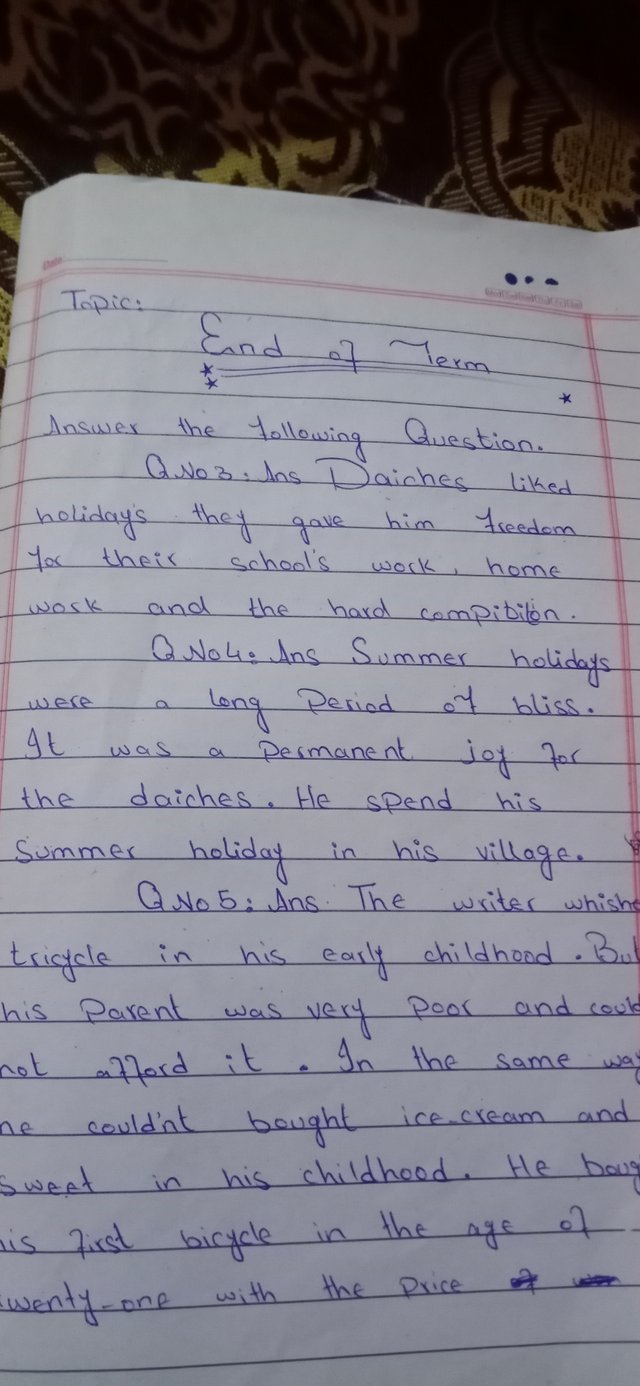 Date
Topic:
End of Term
Answer the following Question.
Q No 3: Ans Daiches liked
holiday's they gave him freedom
for their school's work, home
work and the hard compitition.
Q No 4: Ans Summer holidays
were a long Period of bliss.
It was a permanent joy for
the daiches. He spend his
Summer holiday in his village.
Q No 5: Ans. The writer whishe
tricycle in his early childhood. But
his Parent was very poor and could
not afford it. In the same way
he could'nt bought ice-cream and
sweet in his childhood. He boug
his first bicycle in the age of
twenty-one with the price